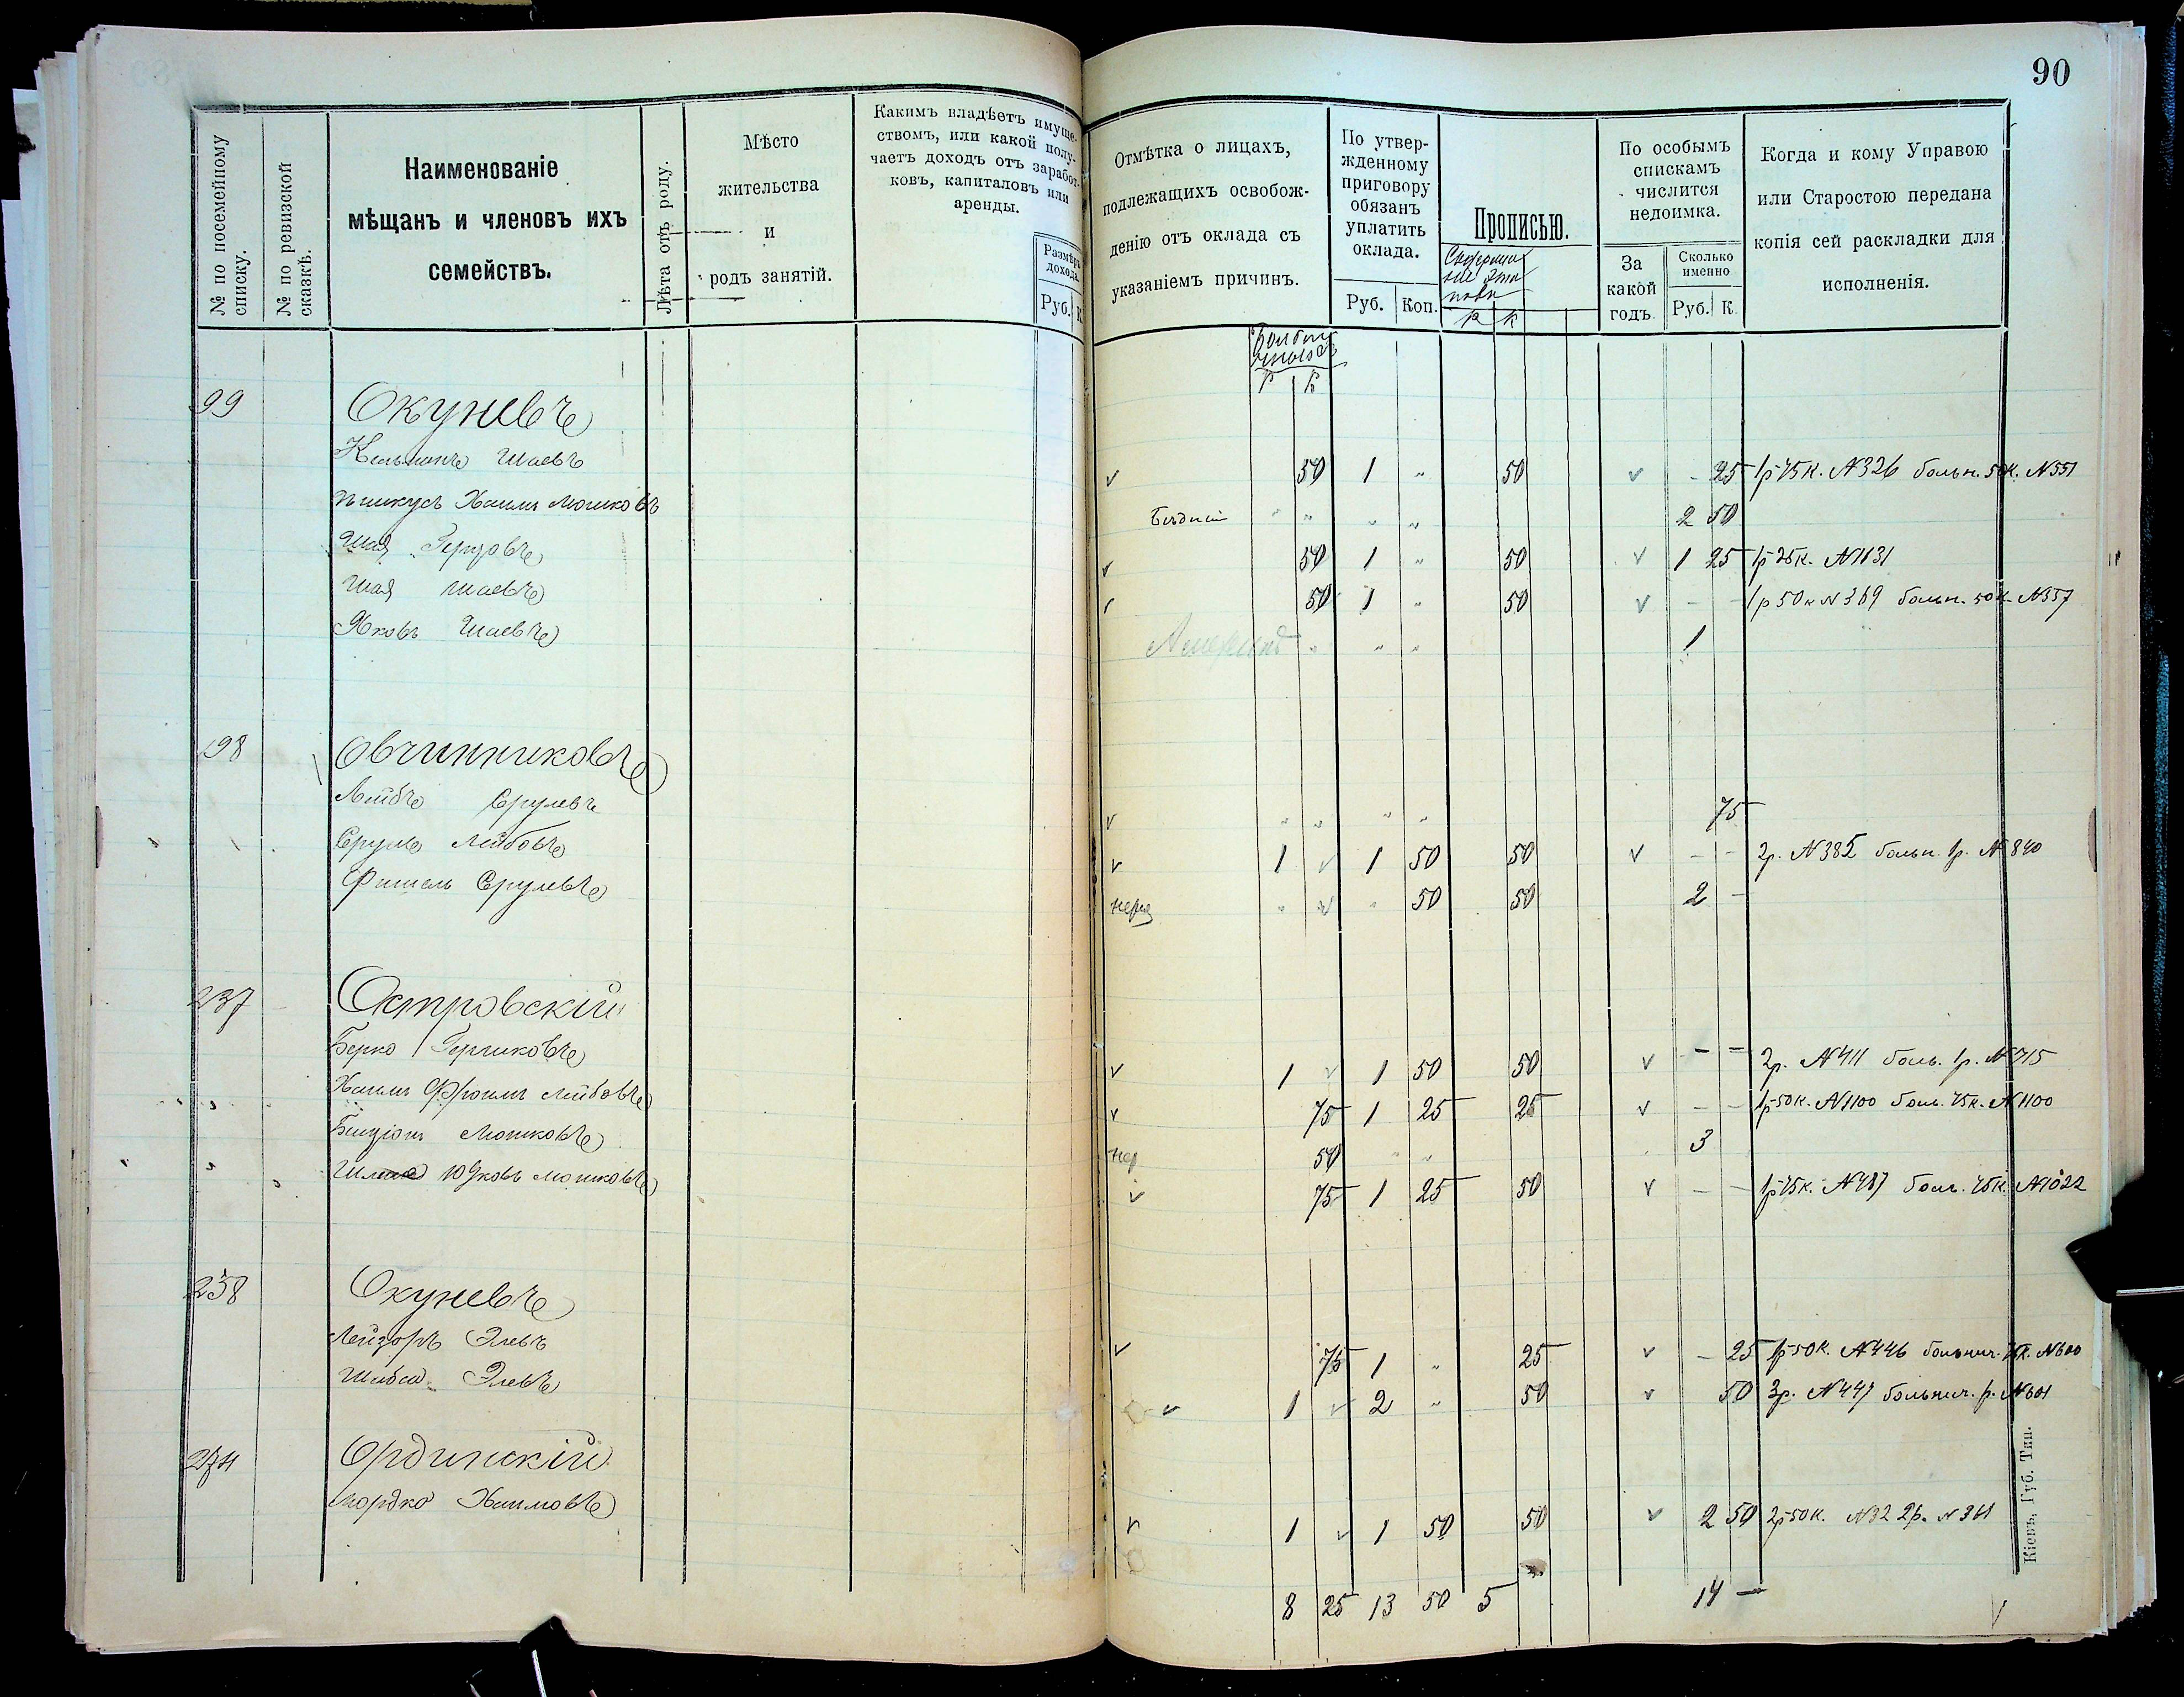 90
№ по посемейному списку.
№ по ревизской сказкѣ.
Наименованіе
мѣщанъ и членовъ ихъ
семействъ.
Лѣта отъ роду.
Мѣсто
жительства
и
родъ занятій.
Каким­ъ владѣетъ имуще-
ствомъ, или какой полу-
чаетъ доходъ отъ заработ-
ковъ, капиталовъ или
аренды.
Размѣръ
дохода.
Руб. К.
Отмѣтка о лицахъ,
подлежащихъ освобож-
денію отъ оклада съ
указаніемъ причинъ.
По утвер-
жденному
приговору
обязанъ
уплатить
оклада.
Руб. Коп.
Прописью.
Р К
По особымъ
спискамъ
числится
недоимка.
За
какой
годъ.
Сколько
именно
Руб. К.
Когда и кому Управою
или Старостою передана
копія сей раскладки для
исполненія.
Р К
99 Окуневъ
Кальманъ Шаевъ 50 1 " 50 - 25 1р 75к. №326 больн. 50к. №551
Пинкусъ Хаимъ Мошковъ Бѣдный " " " " 2 50
Шая Герцовъ 50 1 " 50 1 25 1р 25к. №1131
Шая Шаевъ 50 1 " 50 - - 1р 50к №369 больн. 50к. №557
Яковъ Шаевъ " " " 1
198 Овчинниковъ
Лейбъ Срулевъ " " " " 75
Сруль Лейбовъ 1 1 50 50 - - 2р. №385 больн. 1р. №840
Фишель Срулевъ " " 50 50 2 -
237 Островскій
Берко Гершковъ 1 1 50 50 - - 2р. №411 боль. 1р. №715
Хаимъ Фроимъ Лейбовъ 75 1 25 25 - - 1р 50к. №1100 боль. 75к. №1100
Бенціонъ Мошковъ 50 " " 3
Юдковъ Мошковъ 75 1 25 50 - - 1р 75к. №487 боль. 75к. №1022
238 Окуневъ
Лейзоръ Элевъ 75 1 " 25 - 25 1р 50к. №446 больнич. 75к. №600
Шевса Элевъ 1 2 " 50 50 3р. №447 больнич. р. №601
Ординскій
Мордко Хаимовъ 1 1 50 50 2 50 2р 50к. №32 2р. №361
8 25 13 50 5 14 -
Кіевъ, Губ. Тип.